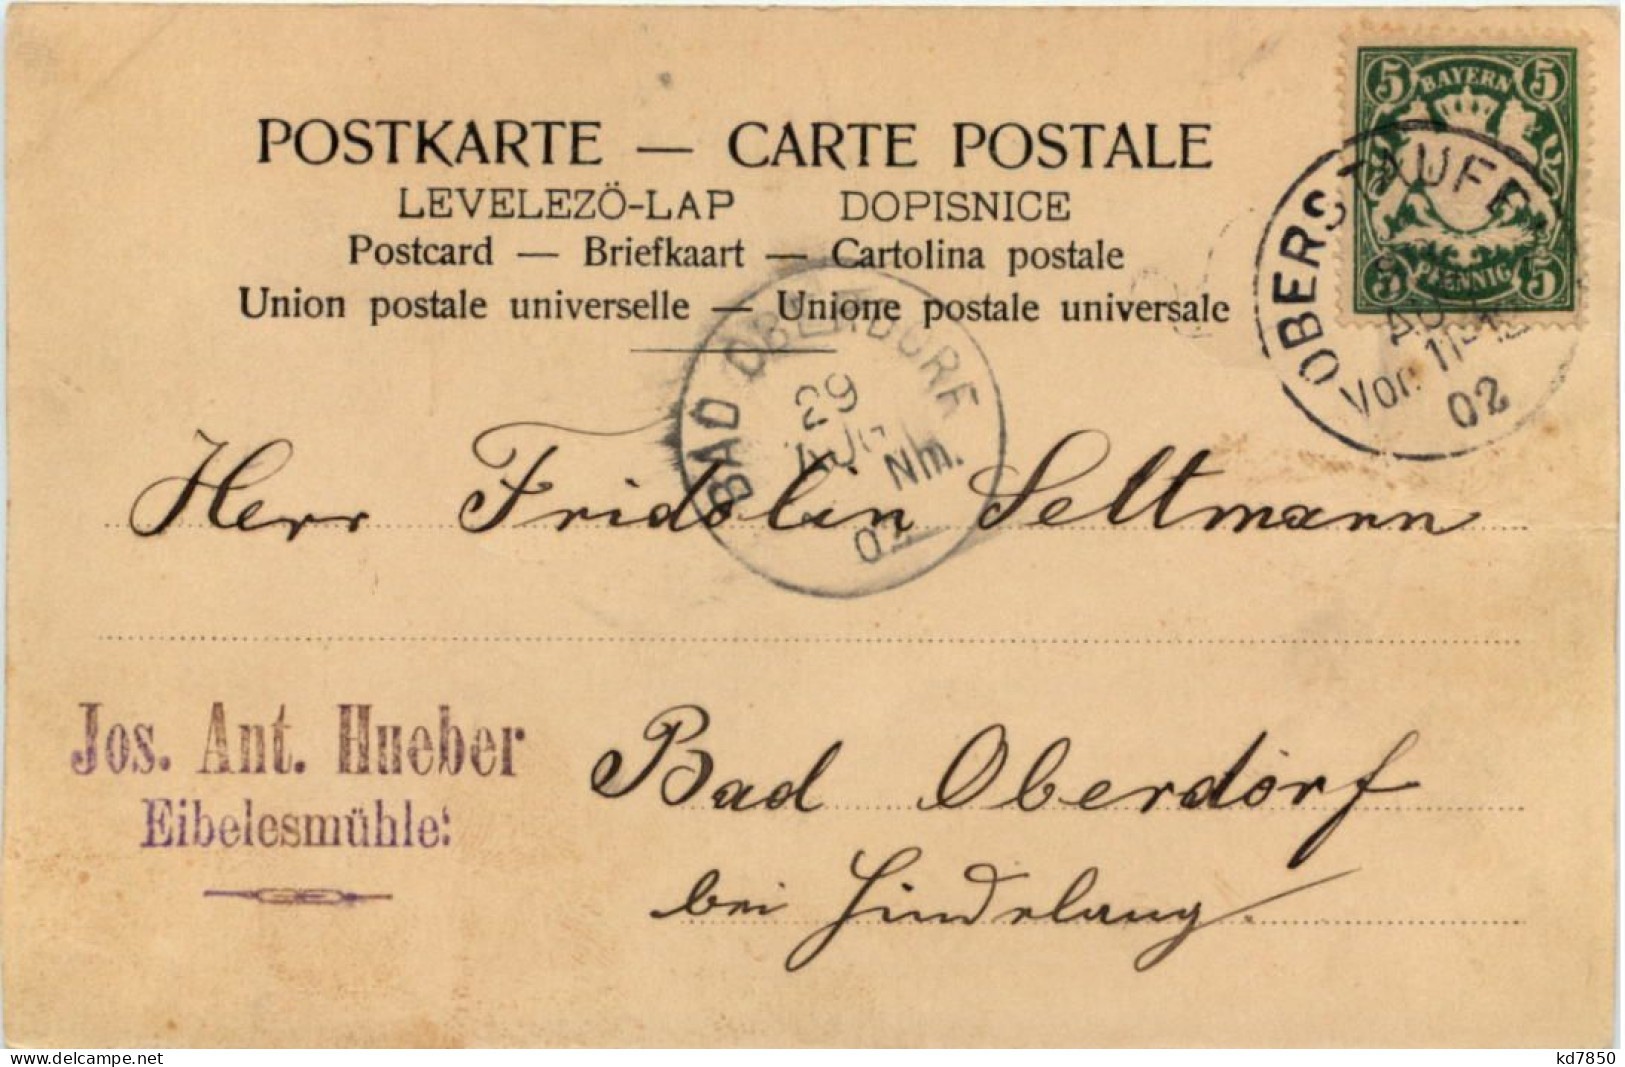 POSTKARTE — CARTE POSTALE
LEVELEZÖ-LAP DOPISNICE
Postcard — Briefkaart — Cartolina postale
Union postale universelle — Unione postale universale
5 BAYERN 5
5 PFENNIG 5
OBERSTAUFE
Vor. 11-12
02
BAD OBERDORF
29
AUG
Nm.
02
Herr Fridolin Seltmann
Jos. Ant. Hueber
Eibelesmühle
Bad Oberdorf
bei Hindelang.
www.delcampe.net
kd7850